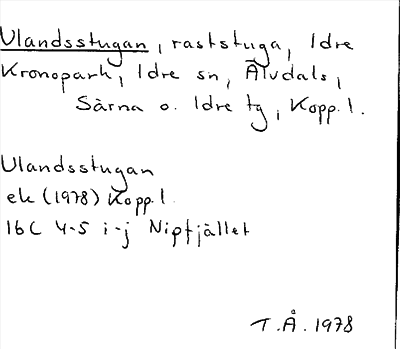 Ulandsstugan, raststuga, Idre
Kronopark, Idre sn, Älvdals,
Särna o. Idre tg, Kopp. l.
Ulandsstugan
ek (1978) Kopp. l
16C 4-5 i-j Nipfjället
T.Å. 1978